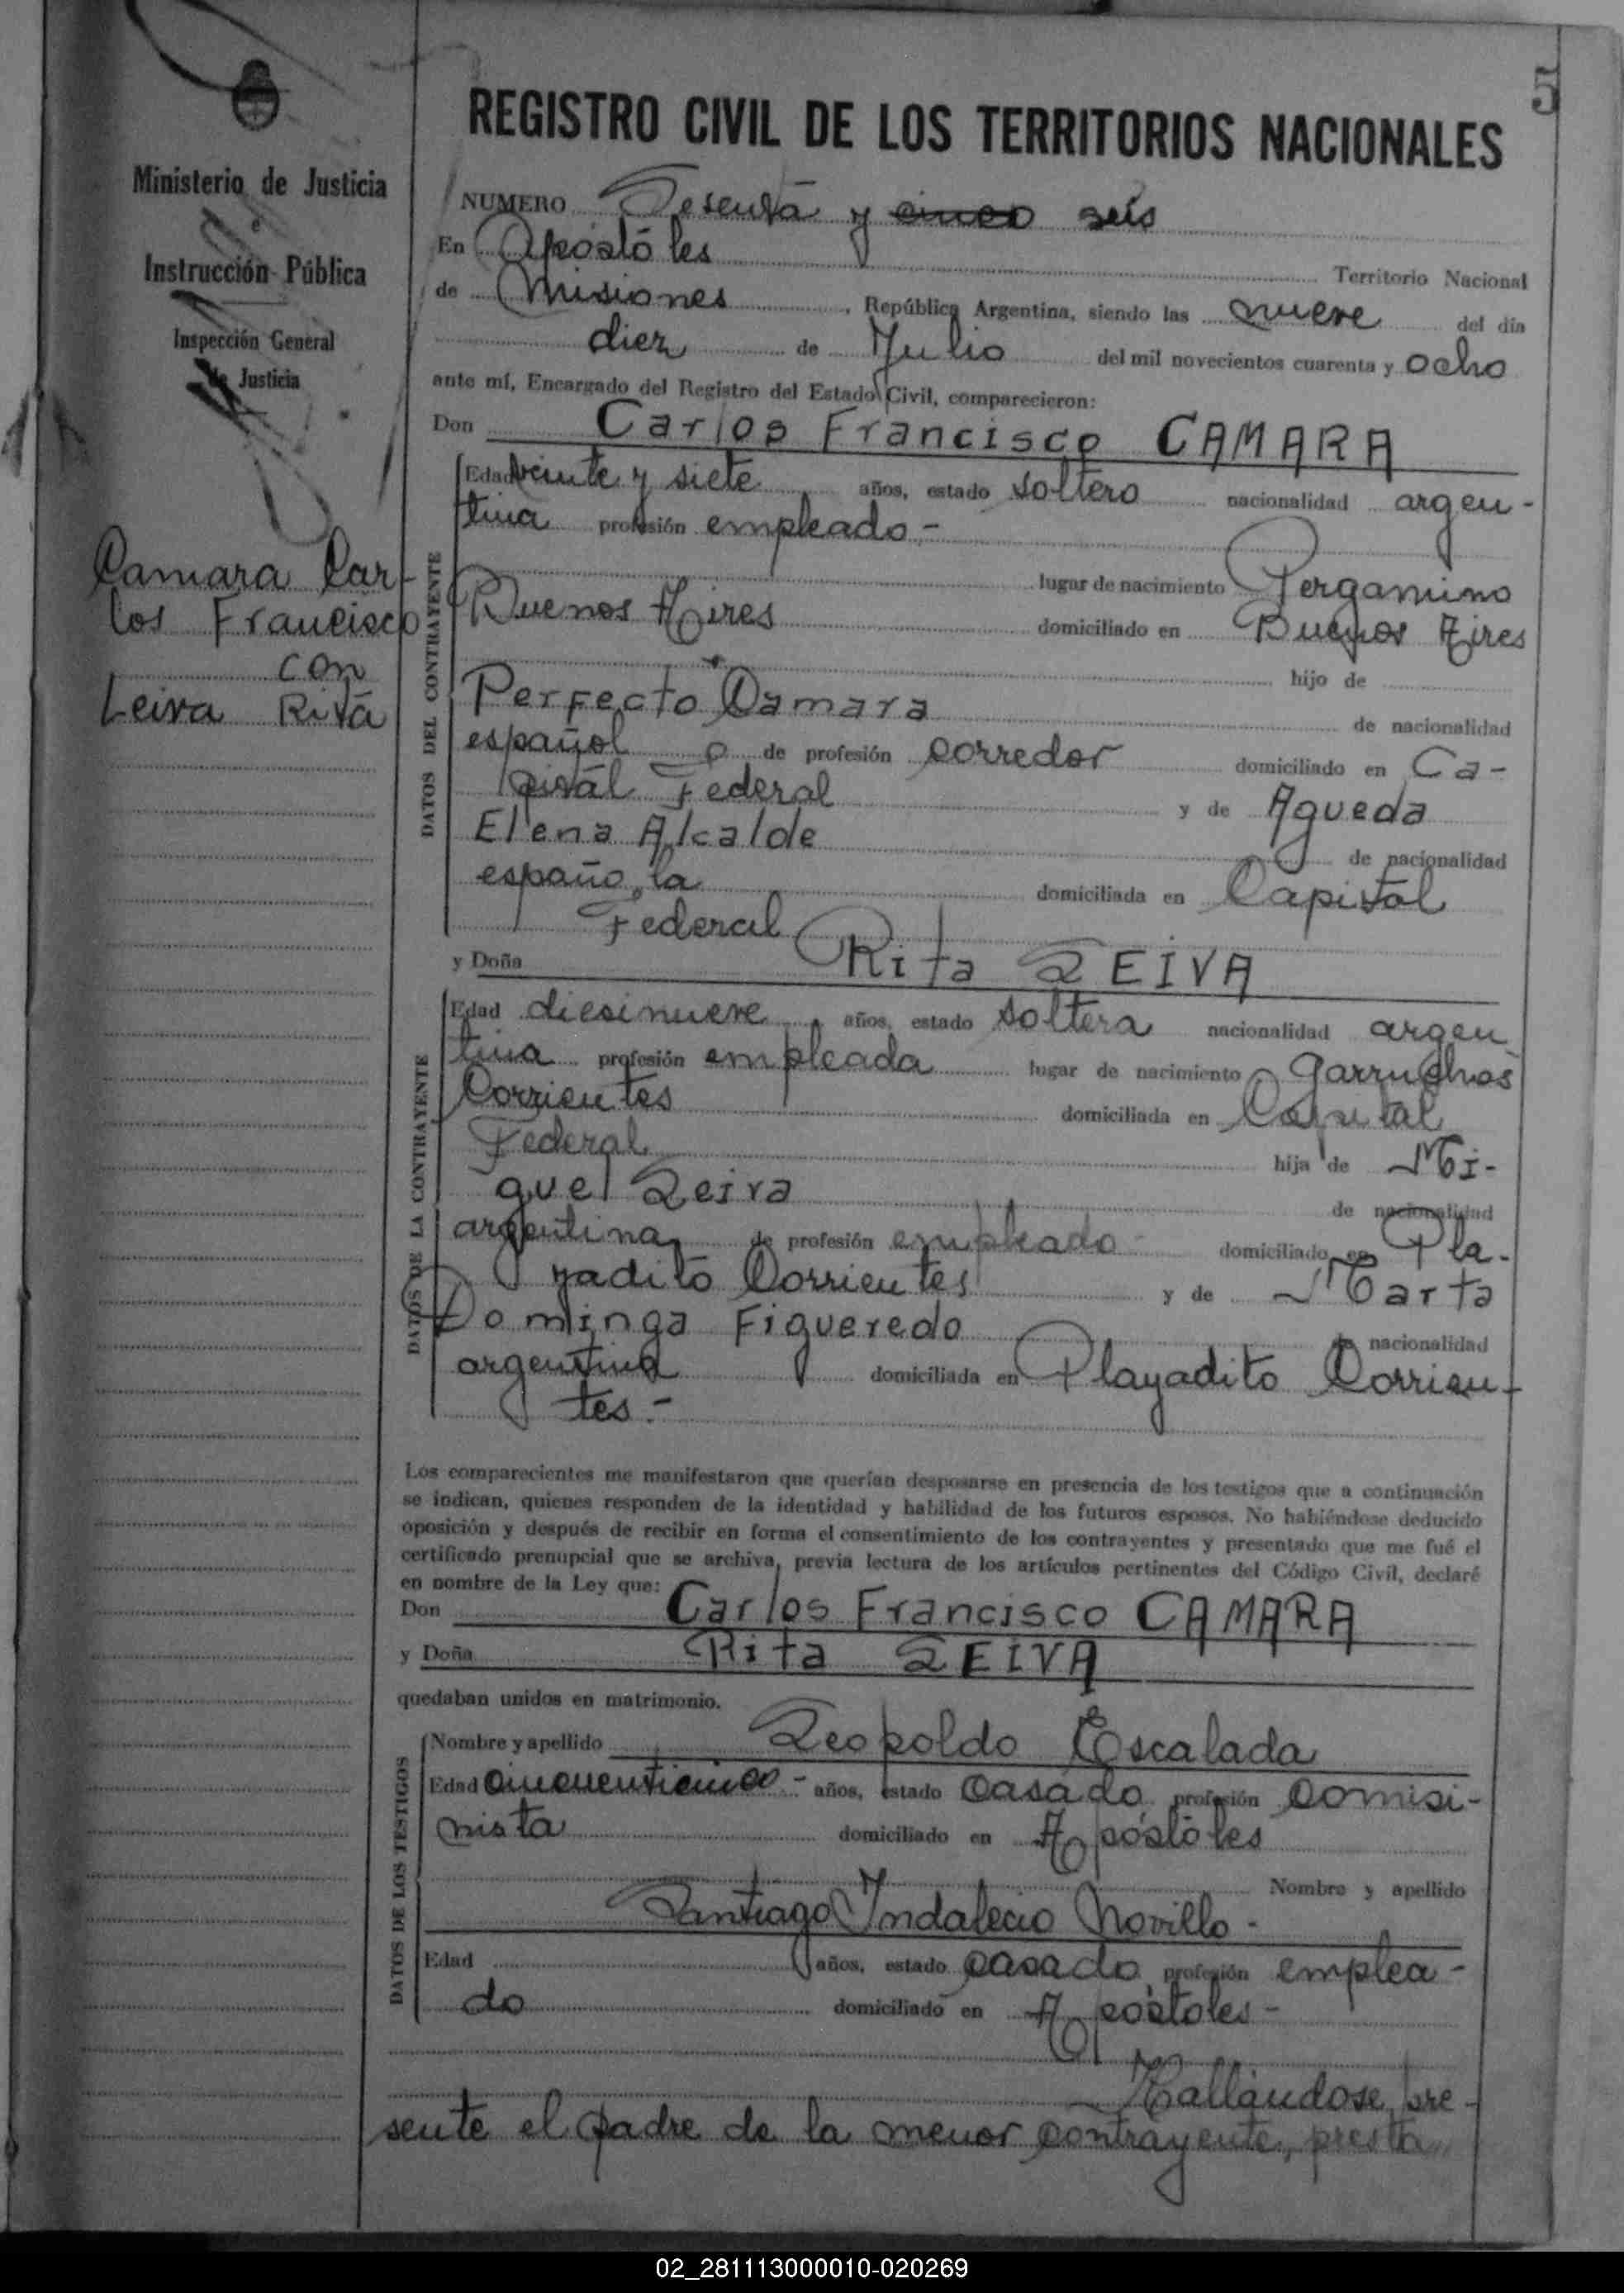 5
REGISTRO CIVIL DE LOS TERRITORIOS NACIONALES
Ministerio de Justicia
e
Instrucción Pública
Inspección General
de Justicia
Camara Car-
los Francisco
con
Leiva Rita
NUMERO Sesenta y cinco seis
En Apóstoles Territorio Nacional
de Misiones, República Argentina, siendo las nueve del día
diez de Julio del mil novecientos cuarenta y ocho
ante mí, Encargado del Registro del Estado Civil, comparecieron:
Don Carlos Francisco CAMARA
DATOS DEL CONTRAYENTE
Edad veinte y siete años, estado soltero nacionalidad argen-
tina profesión empleado -
lugar de nacimiento Pergamino
Buenos Aires domiciliado en Buenos Aires
hijo de
Perfecto Camara de nacionalidad
español de profesión corredor domiciliado en Ca-
pital Federal y de Agueda
Elena Alcalde de nacionalidad
española domiciliada en Capital
Federal
y Doña Rita LEIVA
DATOS DE LA CONTRAYENTE
Edad diesinueve años, estado soltera nacionalidad argen
tina profesión empleada lugar de nacimiento Garruchos
Corrientes domiciliada en Capital
Federal hija de Mi-
guel Leiva de nacionalidad
argentina de profesión empleado domiciliado en Pla-
yadito Corrientes y de Marta
Dominga Figueredo de nacionalidad
argentina domiciliada en Playadito Corrien-
tes.-
Los comparecientes me manifestaron que querían desposarse en presencia de los testigos que a continuación
se indican, quienes responden de la identidad y habilidad de los futuros esposos. No habiéndose deducido
oposición y después de recibir en forma el consentimiento de los contrayentes y presentado que me fué el
certificado prenupcial que se archiva, previa lectura de los artículos pertinentes del Código Civil, declaré
en nombre de la Ley que:
Don Carlos Francisco CAMARA
y Doña Rita LEIVA
quedaban unidos en matrimonio.
DATOS DE LOS TESTIGOS
Nombre y apellido Leopoldo Escalada
Edad cincuenticinco - años, estado casado profesión comisi-
nista domiciliado en Apóstoles
Nombre y apellido
Santiago Indalecio Novillo -
Edad años, estado casado profesión emplea-
do domiciliado en Apóstoles -
Hallándose pre-
sente el padre de la menor contrayente, presta
02_281113000010-020269